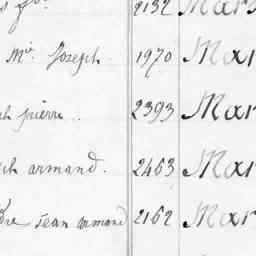 2132 Mar
Mie Joseph 1970 Mar
ph pierre. 2393 Mar
ph armand. 2463 Mar
dre jean armand 2162 Mar